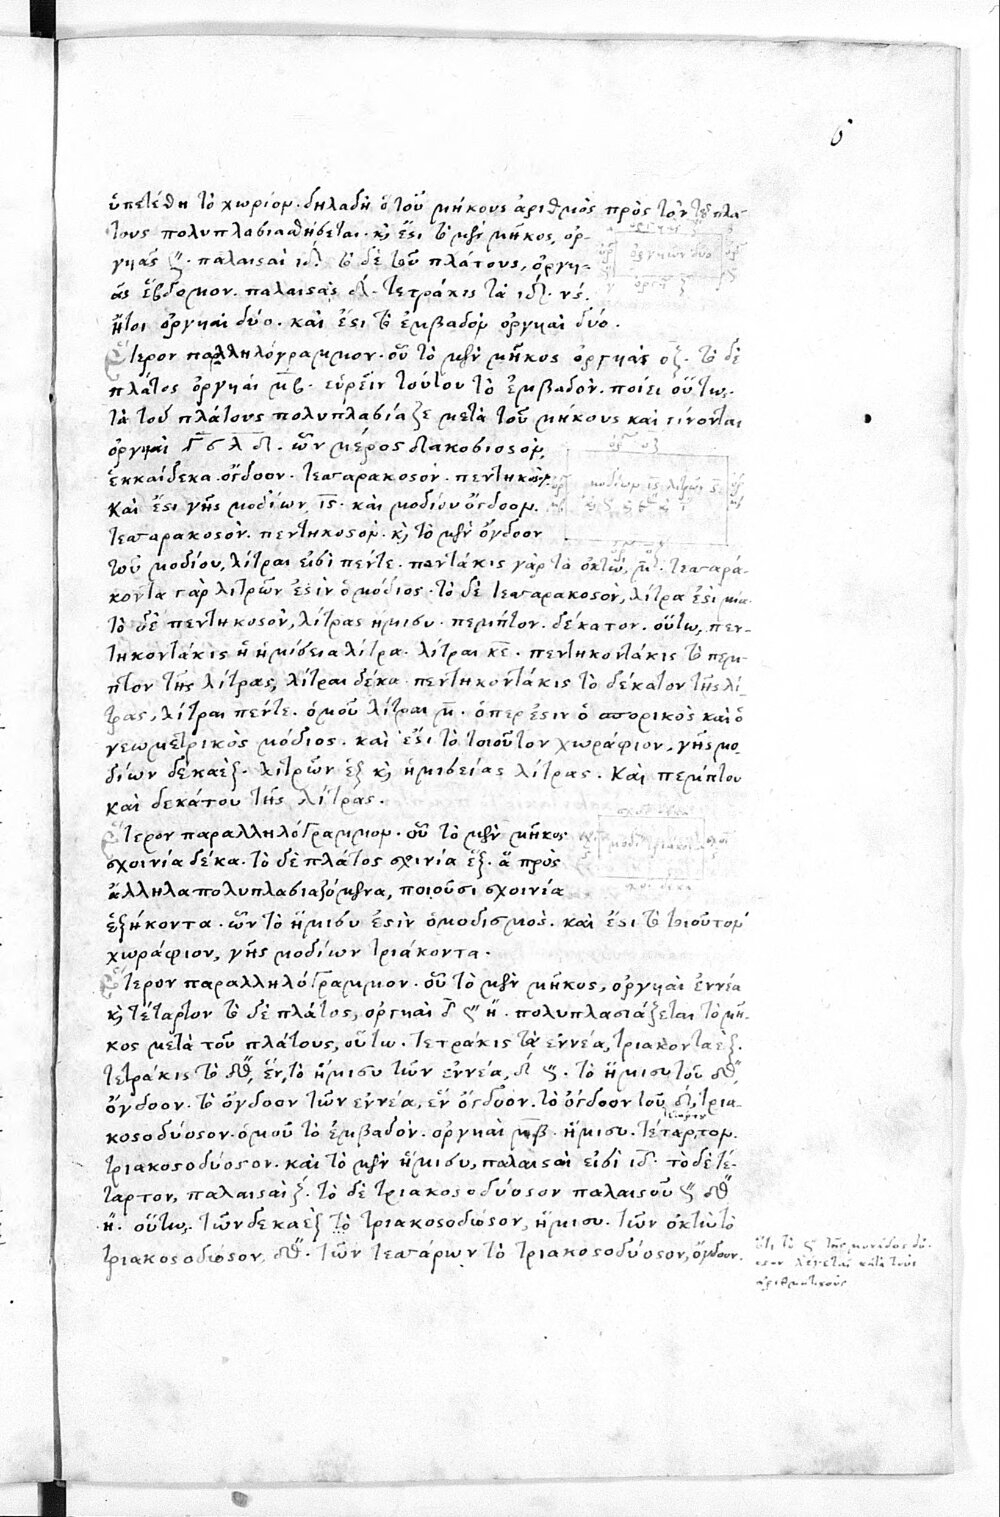 6
ὑπετέθη τὸ χωρίον. δηλαδὴ ὁ τοῦ μήκους ἀριθμὸς πρὸς τὸν τοῦ πλά-
τους πολυπλασιασθήσεται. κὶ ἔστι τὸ μὲν μῆκος, ὀρ-
γυιᾶς 𐅶. παλαισταὶ ιδ. τὸ δὲ τοῦ πλάτους, ὀργυι-
ᾶς ἕβδομον. παλαιστὰς δ. τετράκις τὰ ιδ. νς.
ἤτοι ὀργυιαὶ δύο. καὶ ἔστι τὸ ἐμβαδὸν ὀργυιαὶ δύο.
Ἕτερον παραλληλόγραμμον. οὗ τὸ μὲν μῆκος ὀργυιὰς οζ. τὸ δὲ
πλάτος ὀργυιαὶ μβ. εὑρεῖν τούτου τὸ ἐμβαδὸν. ποίει οὕτως.
τὰ τοῦ πλάτους πολυπλασίαζε μετὰ τοῦ μήκους καὶ γίνονται
ὀργυιαὶ Γ σ λ δ. ὧν μέρος διακοσιοστὸν,
ἑκκαίδεκα. ὄγδοον. τεσσαρακοστὸν. πεντηκοστόν.
Καὶ ἔστι γῆς μοδίων ις. καὶ μοδίου ὄγδοον.
τεσσαρακοστὸν. πεντηκοστὸν. κὶ τὸ μὲν ὄγδοον
τοῦ μοδίου, λίτραι εἰσὶ πέντε. πεντάκις γὰρ τὰ ὀκτὼ, μ. τεσσαρά-
κοντα γὰρ λιτρῶν ἐστὶν ὁ μόδιος. τὸ δὲ τεσσαρακοστὸν, λίτρα ἐστὶ μία.
τὸ δὲ πεντηκοστὸν, λίτρας ἥμισυ. πέμπτον. δέκατον. οὕτω, πεν-
τηκοντάκις ἡ ἡμίσεια λίτρα. λίτραι κε. πεντηκοντάκις τὸ πεμ-
πτον τῆς λίτρας, λίτραι δέκα. πεντηκοντάκις τὸ δέκατον τῆς λί-
τρας, λίτραι πέντε. ὁμοῦ λίτραι μ. ὅπερ ἐστὶν ὁ σπορικὸς καὶ ὁ
γεωμετρικὸς μόδιος. καὶ ἔστι τὸ τοιοῦτον χωράφιον, γῆς μο-
δίων δέκαὲξ. λιτρῶν ἓξ κὶ ἡμισείας λίτρας. Καὶ πέμπτου
καὶ δεκάτου τῆς λίτρας.
Ἕτερον παραλληλόγραμμον. οὗ τὸ μὲν μῆκος
σχοινία δέκα. τὸ δὲ πλάτος σχινία ἓξ. ἃ πρὸς
ἄλληλα πολυπλασιαζόμενα, ποιοῦσι σχοινία
ἑξήκοντα. ὧν τὸ ἥμισυ ἐστὶν ὁ μοδισμὸς. καὶ ἔστι τὸ τοιοῦτον
χωράφιον, γῆς μοδίων τριάκοντα.
Ἕτερον παραλληλόγραμμον. οὗ τὸ μὲν μῆκος, ὀργυιαὶ ἐννέα
κὶ τέταρτον τὸ δὲ πλάτος, ὀργυιαὶ δ 𐅶 η. πολυπλασιάζεται τὸ μῆ-
κος μετὰ τοῦ πλάτους, οὕτω. τετράκις τὰ ἐννέα, τριακονταὲξ.
τετράκις τὸ δʹʹ, ἕν, τὸ ἥμισυ τῶν ἐννέα, δ 𐅶. τὸ ἥμισυ τοῦ δʹʹ,
ὄγδοον. τὸ ὄγδοον τῶν ἐννέα, ἓν ὄγδοον. τὸ ὄγδοον τοῦ δ, τρια-
κοστοδύοστον. ὁμοῦ τὸ ἐμβαδὸν. ὀργυιαὶ μβ. ἥμισυ. τέταρτον.
τριακοστοδύοστον. καὶ τὸ μὲν ἥμισυ, παλαισταὶ εἰσὶ ιδ. τὸ δὲ τέ-
ταρτον, παλαισταὶ ζ. τὸ δὲ τριακοστοδύοστον παλαιστοῦ 𐅶 δʹʹ
η. οὕτως. τῶν δεκαὲξ τὸ τριακοστοδύοστον, ἥμισυ. τῶν ὀκτὼ τὸ
τριακοστοδύοστον, δʹʹ. τῶν τεσσάρων τὸ τριακοστοδύοστον, ὄγδοον.
ὅτι τὸ 𐅶 τῆς μονάδος δύ-
οστον λέγεται κατὰ τοὺς
ἀριθμητικούς